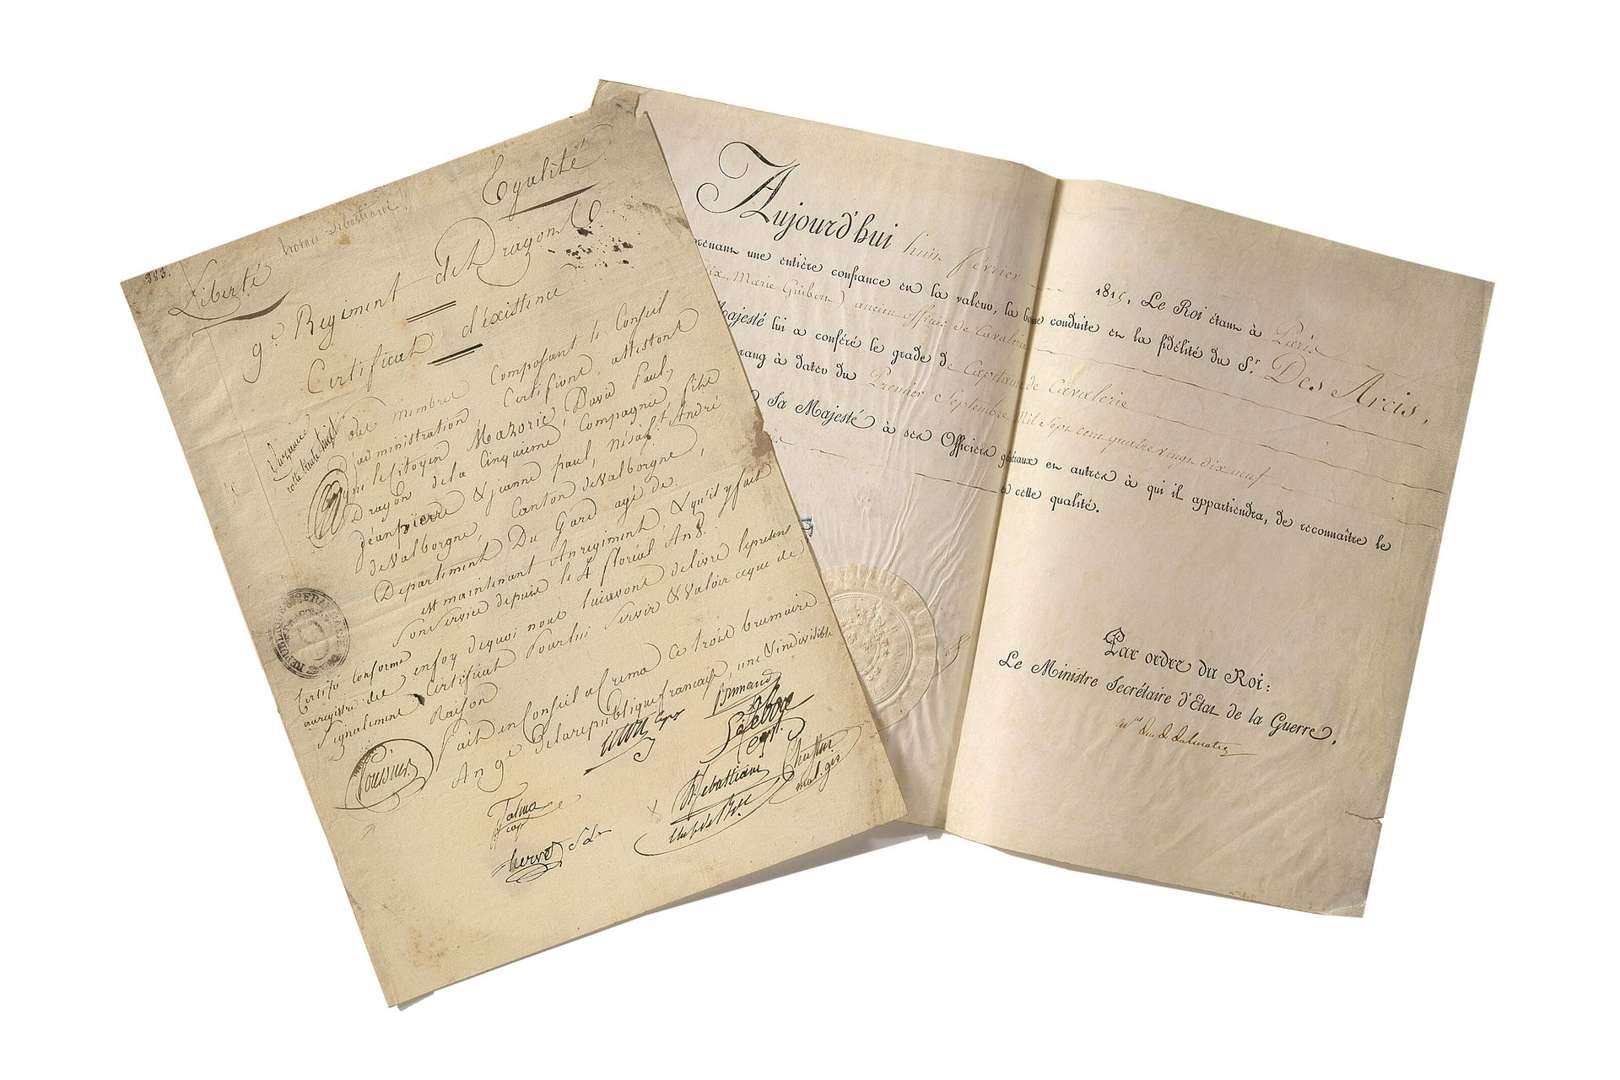 383.
Liberté
Egalité
9e. Regiment de Dragons
Certificat d'éxistence
membres Composant le Conseil
d'administration Certifions, attestons
que le Citoyen Mazorié, David Paul,
Dragon de la Cinquieme Compagnie, fils
de jean pierre & jeanne paul, né à St André
de Valborgne, Canton de Valborgne,
Departement Du Gard agé de
est maintenant au regiment & qu'il y fait
son service depuis le 4 floréal An 8.
en foy de quoi nous lui avons delivré le present
Certificat Pour lui Servir & Valoir ce que de
Raison
Certifié conforme
au registre des
Signalement
fait en Conseil a Crema ce trois brumaire
An 9 de la republique française, une & indivisible
Sebastiani
Aujourd'hui huit février 1815, Le Roi étant à Paris
prenant une entière confiance en la valeur, la bonne conduite et la fidélité du Sr. Des Arcis,
Marie ancien officier de Cavalerie
Majesté lui a conféré le grade de Capitaine de Cavalerie
rang à dater du Premier Septembre Mil Sept cent quatre vingt dix neuf
Sa Majesté à ses Officiers généraux et autres à qui il appartiendra, de reconnaître le
à cette qualité.
Par ordre du Roi:
Le Ministre Secrétaire d'Etat de la Guerre,